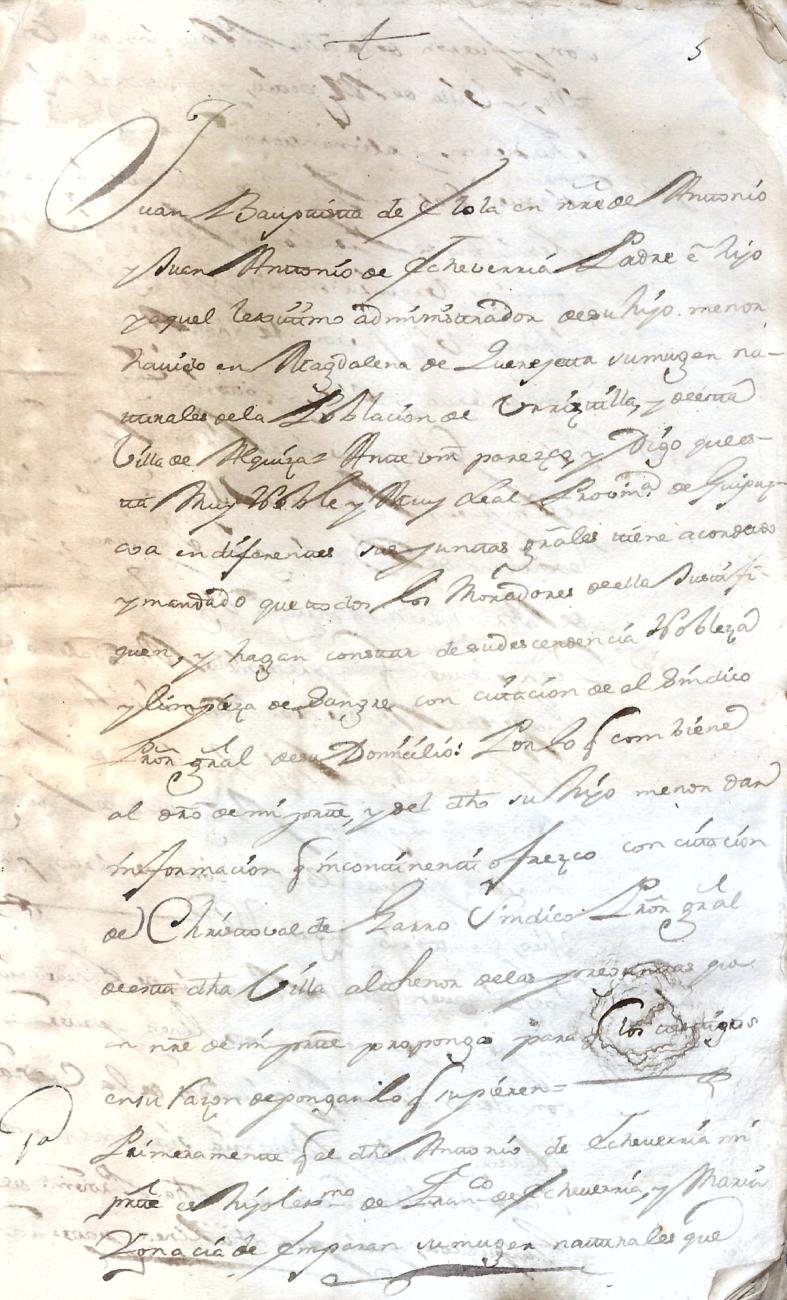 5
Juan Bauptista de Elola en nre de Antonio
y Juan Antonio de Echeverria Padre e hijo
y aquel lexittimo administrador de su hijo menor
havido en Magdalena de Querejeta su muger na-
tturales de la Poblacion de Urrizttilla, y de esta
Villa de Alquiza = Ante vm parezco y Digo que es-
ta Muy Noble y Muy Leal Provinª de Guipuz-
coa en diferentes sus junttas grales ttiene acordado
y mandado que todos los Moradores de ella Justtifi-
quen, y hagan consttar de su descendencia Nobleza
y limpieza de Sangre con cittacion de el Sindico
Pror gral de su Domicilio: Por lo q combiene
al dro de mi partte, y del dho su hijo menor dar
informacion q inconttinentti ofrezco con cittacion
de Christtoval de Garro Sindico Pror gral
de estta dha Villa al thenor de las pregunttas que
en nre de mi partte propongo para q los testtigos
en su razon depongan lo q supieren =
1ª
Primeramentte q el dho Anttonio de Echeverria mi
partte es hijo lexmo de Franco de Echeverria, y Maria
Ygnacia de Emparan su muger natturales que